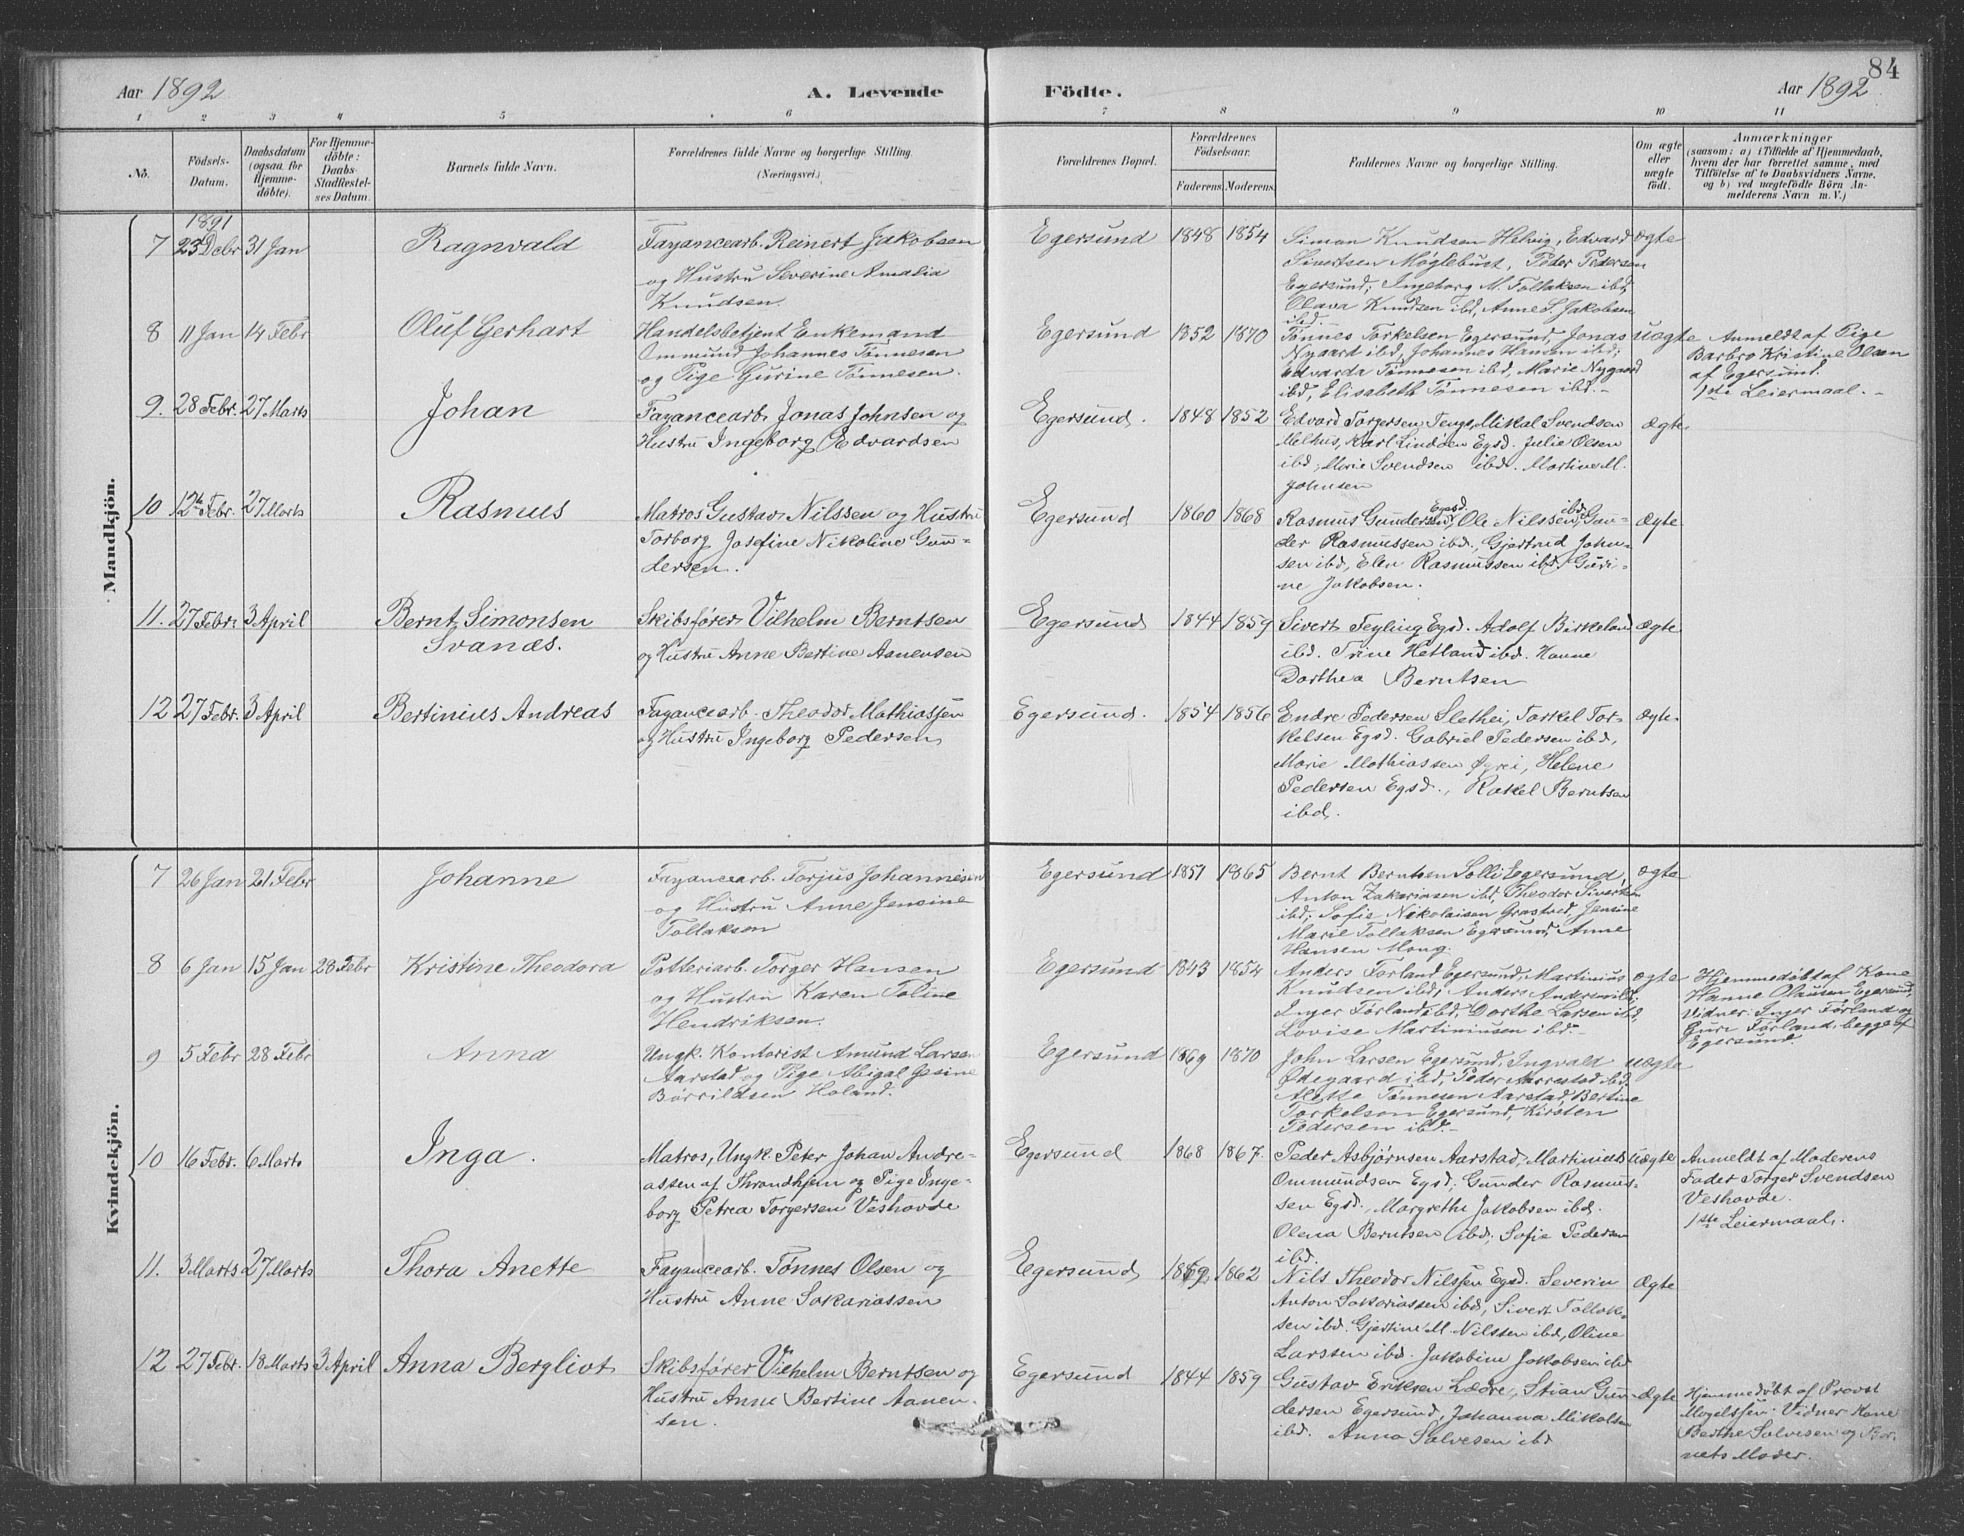 84
Aar 1892
A. Levende
Födte.
Aar 1892
1 2 3 4 5 6 7 8 9 10 11
No.
Födsels-
Datum.
Daabsdatum
(ogsaa for
Hjemme-
döbte).
For Hjemme-
döbte:
Daabs-
Stadfæstel-
ses Datum.
Barnets fulde Navn.
Forældrenes fulde Navne og borgerlige Stilling.
(Næringsvei.)
Forældrenes Bopæl.
Forældrenes
Födselsaar.
Faderens. Moderens.
Faddernes Navne og borgerlige Stilling.
Om ægte
eller
uægte
födt.
Anmærkninger
(saasom: a) i Tilfælde af Hjemmedaab,
hvem der har forrettet samme, med
Tilföielse af to Daabsvidners Navne.
og b) ved uægtefödte Börn An-
melderens Navn m. V.)
Mandkjön.
1891
7 23 Debr 31 Jan
Ragnvald
Fayancearb. Reinert Jakobsen
og Hustru Severine Amalia
Knudsen.
Egersund 1848 1854
Simon Knudsen Helvig, Edvard
Sivertsen Møglebust, Peder Pedersen
Egersund, Ingeborg M. Tollaksen ibd,
Olava Knudsen ibd, Anne S. Jakobsen
ibd.
ægte
8 11 Jan 14 Febr
Oluf Gerhart
Handelsbetjent Enkemand
Ommund Johannes Tønnesen
og Pige Gurine Tønnesen.
Egersund 1852 1870
Tønnes Torkelsen Egersund, Jonas
Nygaard ibd, Johannes Hansen ibd;
Edvarda Tønnesen ibd, Marie Nygaard
ibd, Elisabeth Tønnesen ibd.-
uægte
Anmeldt af Pige
Barbro Kristine Olsen
af Egersund.
1ste Leiermaal.-
9. 28 Febr. 27 Marts
Johan
Fayancearb. Jonas Johnsen og
Hustru Ingeborg Edvardsen
Egersund. 1848 1852
Edvard Torgersen Tengs, Mikal Svendsen
Melhus, Karl Lindøen Egsd. Julie Olsen
ibd, Marie Svendsen ibd. Martine M.
Johnsen
ægte.
10 12te Febr. 27 Marts
Rasmus
Matros Gustav Nilssen og Hustru
Torborg Josefine Nikoline Gun-
dersen.
Egersund 1860 1868
Rasmus Gundersen Egsd., Ole Nilssen ibd, Gun-
der Rasmussen ibd., Gjertrud John-
sen ibd, Elen Rasmussen ibd, Guri-
ne Jakobsen.
ægte
11. 27 Febr. 3 April
Bernt Simonsen
Svanes.
Skibsfører Vilhelm Berntsen
og Hustru Anne Bertine Aanensen
Egersund 1844 1859
Sivert Feyling Egsd. Adolf Birkeland
ibd. Trine Hetland ibd. Hanne
Dorthea Berntsen
ægte
12 27 Febr. 3 April
Bertinius Andreas
Fayancearb. Theodor Mathiassen
og Hustru Ingeborg Pedersen
Egersund. 1854 1856
Endre Pedersen Slethei, Torkel Tor-
kelsen Egsd. Gabriel Pedersen ibd,
Marie Mathiassen Øyrei, Helene
Pedersen Egsd., Rakel Berntsen
ibd.
ægte.
Kvindekjön.
7 26 Jan 21 Febr
Johanne
Fayancearb. Torjus Johannesen
og Hustru Anne Jensine
Tollaksen
Egersund 1851 1865
Bernt Berntsen Solli, Egersund,
Anton Zakariasen ibd, Theodor Sivertsen
ibd; Sofie Nikolaisen Grastved, Jensine
Marie Tollaksen Egersund, Anne
Hansen Mong.
ægte
8 6 Jan 15 Jan 28 Febr
Kristine Theodora
Potteriarb. Torger Hansen
og Hustru Karen Toline
Hendriksen.
Egersund 1843 1854
Anders Førland Egersund, Martinius
Knudsen ibd; Anders Andersen ibd,
Inger Førland ibd, Dorthe Larsen ibd,
Lovise Martiniusen ibd.-
ægte
Hjemmedøbt af Kone
Hanne Olausen Egersund.
Vidner: Inger Førland og
Guri Førland, begge af
Egersund
9 5 Febr 28 Febr
Anna
Ungk. Kontorist Amund Larsen
Aarstad og Pige Abigal Gesine
Børrildsen Holand.
Egersund 1869 1870
John Larsen Egersund, Ingvald
Ødegaard ibd, Peder Aarrestad ibd.
Alette Tønnesen Aarstad, Bertine
Torkelsen Egersund, Kirsten
Pedersen ibd.-
uægte
10 16 Febr. 6 Marts
Inga.
Matros, Ungk. Peter Johan Andre-
assen af Throndhjem og Pige Inge-
borg Petrea Torgersen Veshovde
Egersund 1868 1867.
Peder Asbjørnsen Aarstad, Martinius
Ommundsen Egsd; Gunder Rasmus-
sen Egsd., Margrethe Jakobsen ibd.
Olena Berntsen ibd, Sofie Pedersen
ibd.
uægte
Anmeldt af Moderens
Fader Torger Svendsen
Veshovde.
1ste Leiermaal.
11. 3 Marts 27 Marts
Thora Anette
Fayancearb. Tønnes Olsen og
Hustru Anne Sakariassen
Egersund 1862
Nils Theodor Nilssen Egsd. Severin
Anton Sakariassen ibd, Sivert Tollak-
sen ibd. Gjertine M. Nilssen ibd, Oline
Larssen ibd. Jakobine Jakobsen ibd
ægte
12 27 Febr. 18 Marts 3 April
Anna Bergliot
Skibsfører Vilhelm Berntsen og
Hustru Anne Bertine Aanen-
sen.
Egersund 1844 1859
Gustav Eriksen Lædre, Stian Gun-
dersen Egersund, Johanna Mikalsen
ibd. Anna Salvesen ibd
ægte
Hjemmedøbt af Provst
Vidner Kone
Berthe Salvesen og Bar-
nets Moder.